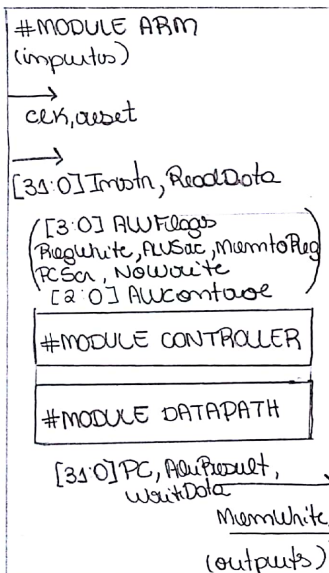 #MODULE ARM
(imputos)
clk, reset
[31:0] Instr, ReadData
[3:0] ALUFlags
RegWrite, ALUSrc, MemtoReg
PCSrc, NoWrite
[2:0] ALUControl
#MODULE CONTROLLER
#MODULE DATAPATH
[31:0] PC, AluResult,
WriteData
MemWrite
(outputs)